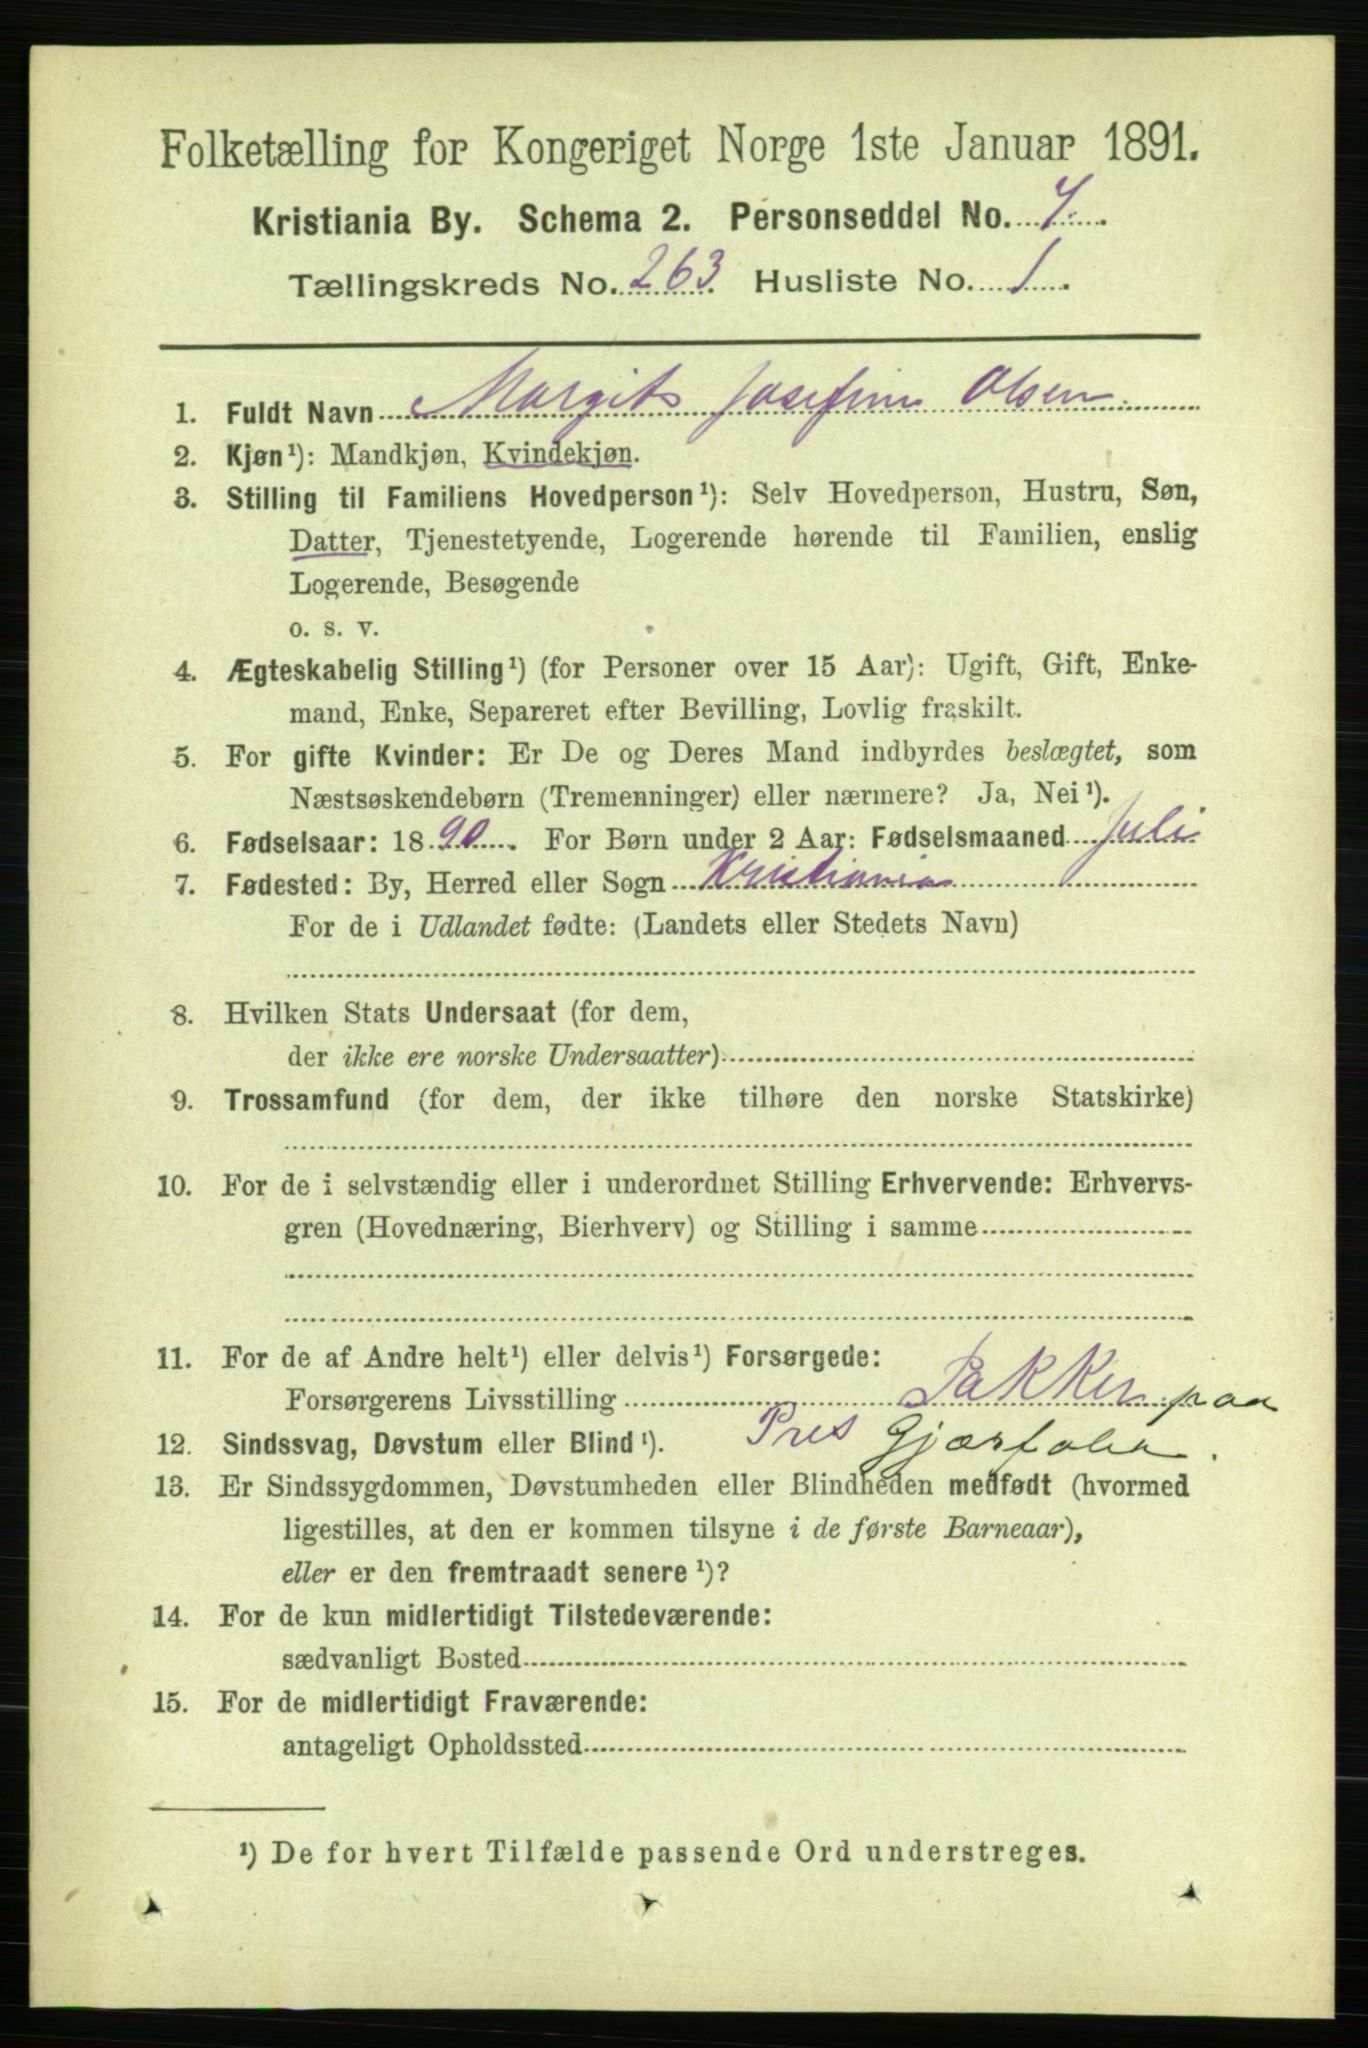 Folketælling for Kongeriget Norge 1ste Januar 1891.
Kristiania By. Schema 2. Personseddel No. 7.
Tællingskreds No. 263. Husliste No. 1.
1. Fuldt Navn Margit Josefine Olsen.
2. Kjøn¹): Mandkjøn, Kvindekjøn.
3. Stilling til Familiens Hovedperson¹): Selv Hovedperson, Hustru, Søn,
Datter, Tjenestetyende, Logerende hørende til Familien, enslig
Logerende, Besøgende
o. s. v.
4. Ægteskabelig Stilling¹) (for Personer over 15 Aar): Ugift, Gift, Enke-
mand, Enke, Separeret efter Bevilling, Lovlig fraskilt.
5. For gifte Kvinder: Er De og Deres Mand indbyrdes beslægtet, som
Næstsøskendebørn (Tremenninger) eller nærmere? Ja, Nei¹).
6. Fødselsaar: 1890. For Børn under 2 Aar: Fødselsmaaned Juli
7. Fødested: By, Herred eller Sogn Kristiania
For de i Udlandet fødte: (Landets eller Stedets Navn)
8. Hvilken Stats Undersaat (for dem,
der ikke ere norske Undersaatter)
9. Trossamfund (for dem, der ikke tilhøre den norske Statskirke)
10. For de i selvstændig eller i underordnet Stilling Erhvervende: Erhvervs-
gren (Hovednæring, Bierhverv) og Stilling i samme
11. For de af Andre helt¹) eller delvis¹) Forsørgede:
Forsørgerens Livsstilling Pakker paa
12. Sindssvag, Døvstum eller Blind¹). Pres Gjærfabr.
13. Er Sindssygdommen, Døvstumheden eller Blindheden medfødt (hvormed
ligestilles, at den er kommen tilsyne i de første Barneaar),
eller er den fremtraadt senere¹)?
14. For de kun midlertidigt Tilstedeværende:
sædvanligt Bosted
15. For de midlertidigt Fraværende:
antageligt Opholdssted
¹) De for hvert Tilfælde passende Ord understreges.